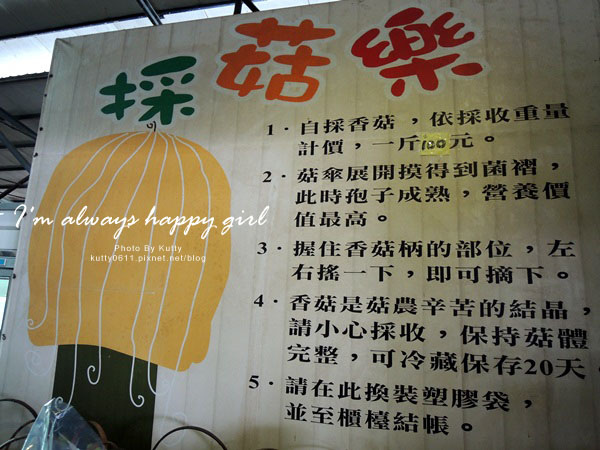 採菇樂
1．自採香菇，依採收重量
計價，一斤100元。
2．菇傘展開摸得到菌褶，
此時孢子成熟，營養價
值最高。
3．握住香菇柄的部位，左
右搖一下，即可摘下。
4．香菇是菇農辛苦的結晶，
請小心採收，保持菇體
完整，可冷藏保存20天。
5．請在此換裝塑膠袋，
並至櫃檯結帳。
I'm always happy girl
Photo By Kutty
kutty0611.pixnet.net/blog